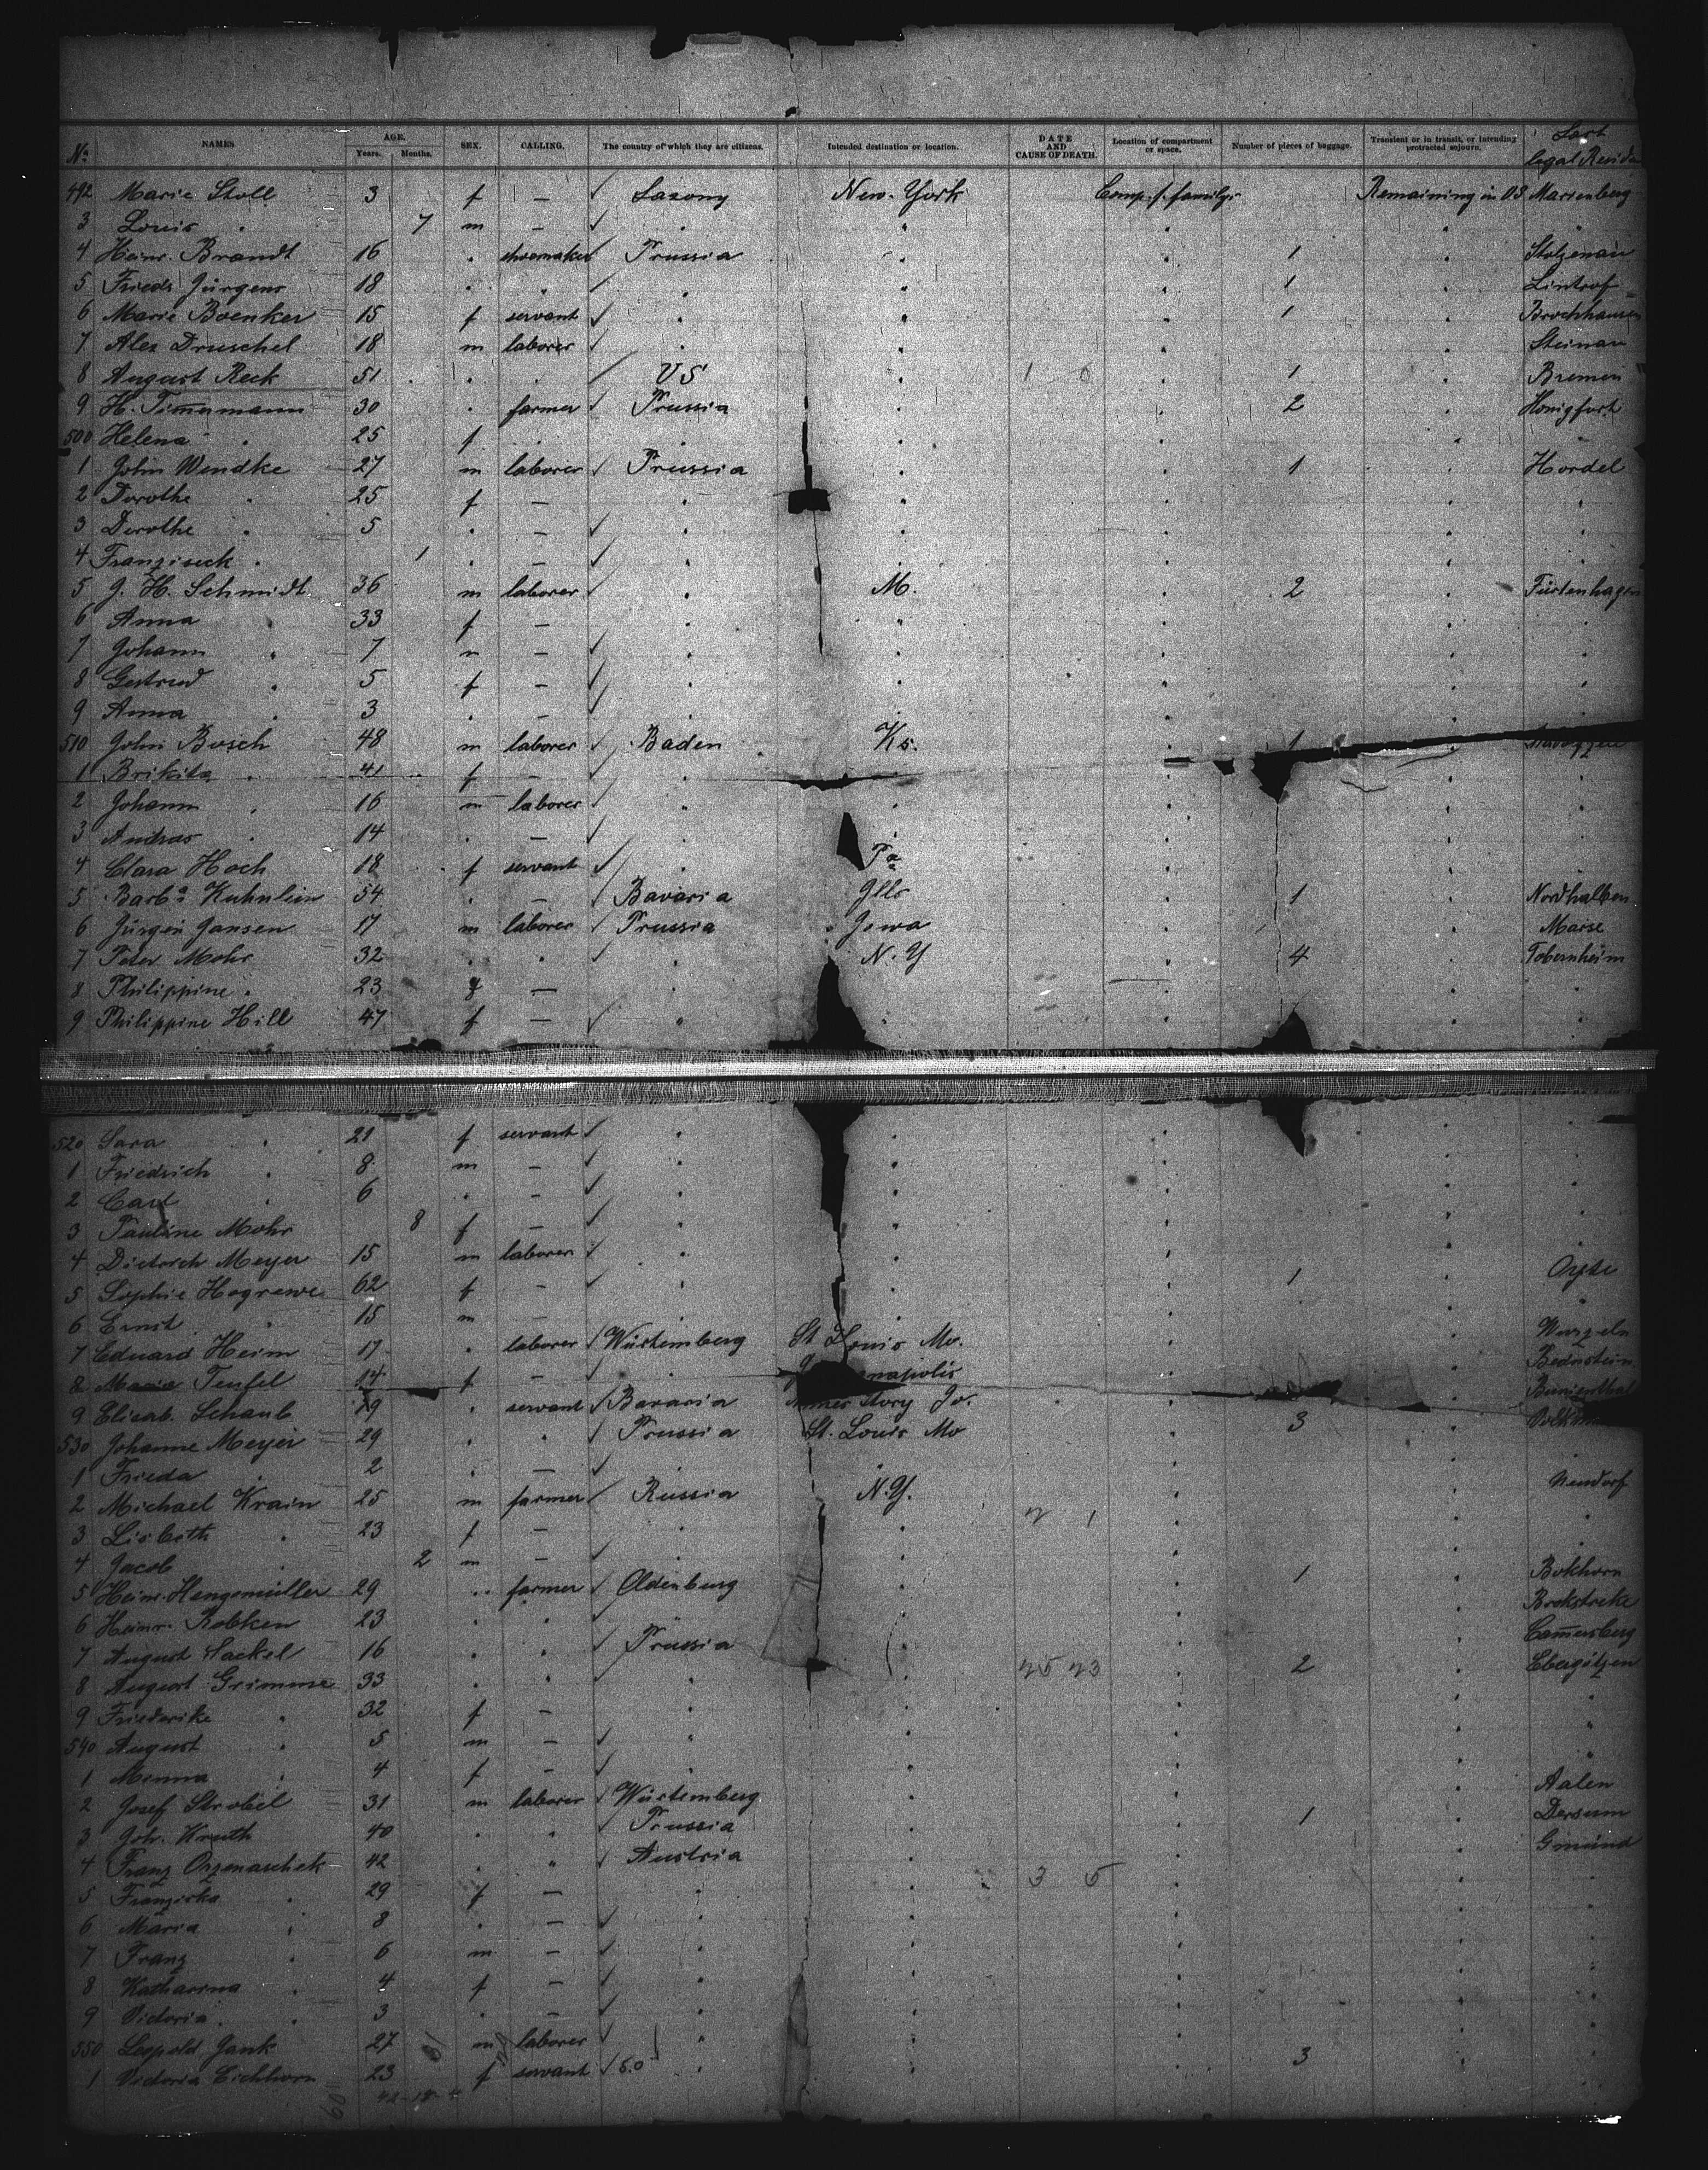 No. NAMES AGE. Years. Months. SEX. CALLING. The country of which they are citizens. Intended destination or location. DATE AND CAUSE OF DEATH. Location of compartment or space. Number of pieces of baggage. Transient or in transit, or intruding protracted sojourn. Last legal Reside
492 Marie Stoll 3 f — ✓ Saxony New-York Comp. f. familys Remaining in US Marienberg
3 Louis " 7 m — ✓ " " " " "
4 Heinr. Brandt 16 " shoemaker ✓ Prussia " " 1 " Stolzenau
5 Friedr Jürgens 18 " " ✓ " " " 1 " Lintrof
6 Marie Boenker 15 f servant ✓ " " " 1 " Brockhausen
7 Alex Druschel 18 m laborer ✓ " " " " Steinau
8 August Reck 51 " " ✓ US " 1 6 " 1 " Bremen
9 H. Timmermann 30 " farmer ✓ Prussia " " 2 " Honigfort
500 Helena " 25 f " " " " " "
1 John Wendke 27 m laborer ✓ Prussia " " 1 " Hordel
2 Dorothe " 25 f — " " " " "
3 Dorothe " 5 " — ✓ " " " " "
4 Franziseck " 1 " — ✓ " " " " "
5 J. H. Schmidt 36 m laborer ✓ " M. " 2 " Fürstenhagen
6 Anna " 33 f — " " " " "
7 Johann " 7 m — ✓ " " " " "
8 Gertrud " 5 f — ✓ " " " " "
9 Anna " 3 " — ✓ " " " " "
510 John Bosch 48 m laborer ✓ Baden Ks. " 1 "
1 Brikita " 41 f — ✓ " " " " "
2 Johann " 16 m laborer ✓ " " " " "
3 Andras " 14 " — ✓ " " " " "
4 Clara Hoch 18 f servant ✓ " Pa " " "
5 Barba Kuhnlein 54 " — ✓ Bavaria Ills " 1 " Nordhalben
6 Jürgen Jansen 17 m laborer ✓ Prussia Jowa " " Marse
7 Peter Mohr 32 " " ✓ " N.Y " 4 " Tobernheim
8 Philippine " 23 f — " " " " "
9 Philippine Hill 47 f — ✓ " " " " "
520 Sara " 21 f servant ✓ " " " " "
1 Friedrich " 8 m — ✓ " " " " "
2 Carl " 6 " — ✓ " " " " "
3 Pauline Mohr 8 f — ✓ " " " " "
4 Dietrich Meyer 15 m laborer ✓ " " " "
5 Sophie Hogrewe 62 f — ✓ " " " 1 " Oyste
6 Ernst " 15 m — " " " " "
7 Eduard Heim 17 " laborer ✓ Würtemberg St Louis Mo. " " Wurzeln
8 Maria Teufel 14 f — ✓ " " "
9 Elisab. Schaub 19 " servant ✓ Bavaria Story Jo. " "
530 Johanne Meyer 29 " " ✓ Prussia St. Louis Mo " 3 "
1 Frieda " 2 " — ✓ " " " " "
2 Michael Krain 25 m farmer ✓ Russia N.Y. " " Neudorf
3 Lisbeth " 23 f — " " 2 1 " " "
4 Jacob " 2 m — ✓ " " " " "
5 Heinr. Hangemüller 29 " farmer ✓ Oldenburg " " 1 " Bokhorn
6 Heinr. Robken 23 " " ✓ " " " " Brokstreke
7 August Sackel 16 " " ✓ Prussia " " " Camersberg
8 August Grimme 33 " " ✓ " " 25 23 " 2 " Ebergötzen
9 Friederike " 32 f — " " " " "
540 August " 5 m — ✓ " " " " "
1 Menna " 4 f — ✓ " " " " "
2 Josef Strobel 31 m laborer ✓ Würtemberg " " " Aalen
3 Joh. Kruth 40 " " ✓ Prussia " " 1 " Dersum
4 Franz Orzenaschek 42 " " ✓ Austria " " " Gmünd
5 Franziska " 29 f — " " 3 5 " " "
6 Maria " 8 " — ✓ " " " " "
7 Franz " 6 m — ✓ " " " " "
8 Katharina " 4 f — ✓ " " " " "
9 Victoria " 3 " — ✓ " " " " "
550 Leopold Jank 27 m laborer ✓ " " " " "
1 Victoria Eichhorn 23 f servant ✓ 5.0 " " " 3 " "